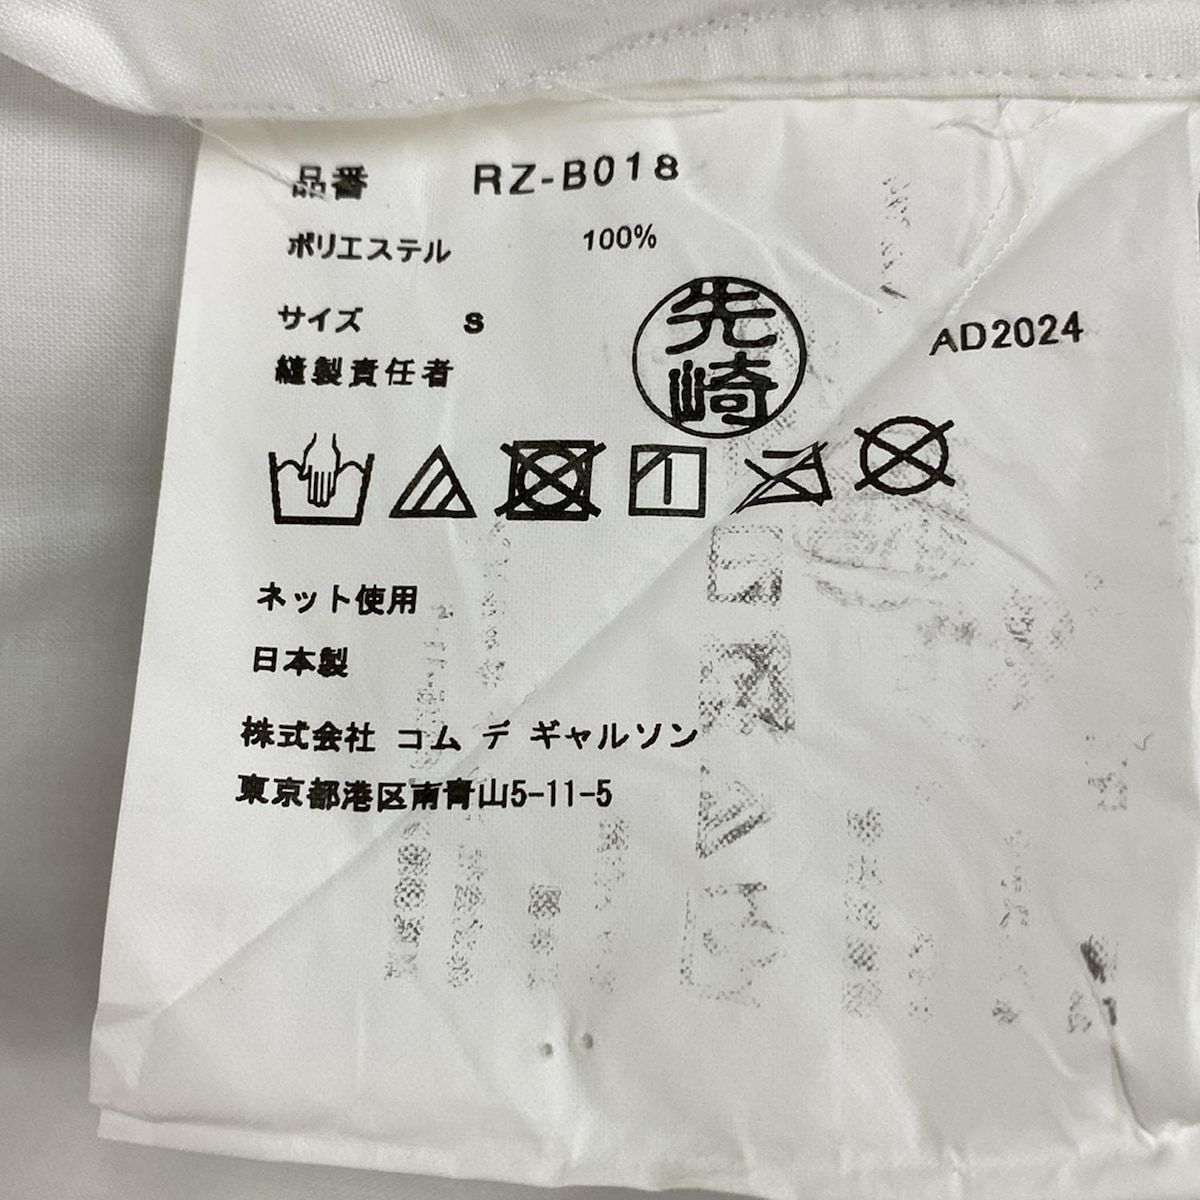 品番 RZ-B018
ポリエステル 100%
サイズ S
縫製責任者 先崎
AD2024
ネット使用
日本製
株式会社 コム デ ギャルソン
東京都港区南青山5-11-5